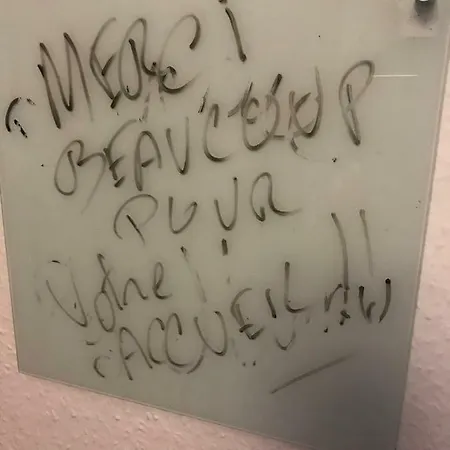 MERCI
BEAUCOUP
POUR
Votre
ACCUEIL !!